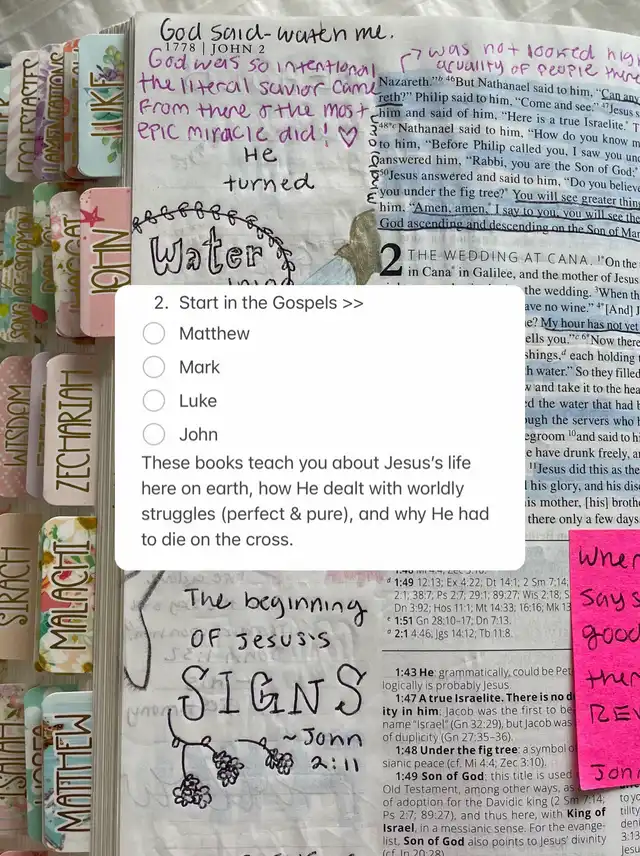 God said-watch me.
1778 | JOHN 2
God was so intentional
the literal savior came
From there & the most
epic miracle did! ♡
He
turned
Water
was not looked high
quality of people there
Nazareth."ᵇ ⁴⁶But Nathanael said to him, "Can any
reth?" Philip said to him, "Come and see." ⁴⁷Jesus s
him and said of him, "Here is a true Israelite.
⁴⁸ᶜ Nathanael said to him, "How do you know m
to him, "Before Philip called you, I saw you und
answered him, "Rabbi, you are the Son of God;
⁵⁰Jesus answered and said to him, "Do you believe
you under the fig tree? You will see greater thing
him, "Amen, amen, I say to you, you will see the
God ascending and descending on the Son of Man
2 THE WEDDING AT CANA. ¹On the
in Cana in Galilee, and the mother of Jesus
the wedding. ³When th
ave no wine." ⁴[And] J
e? My hour has not yet
ells you."ᶜ ⁶Now there
shings,ᵈ each holding
h water." So they filled
w and take it to the hea
ed the water that had b
ough the servers who
egroom ¹⁰and said to hi
e have drunk freely, an
¹¹Jesus did this as the
l his glory, and his disc
is mother, [his] brothe
there only a few days
2. Start in the Gospels >>
Matthew
Mark
Luke
John
These books teach you about Jesus's life
here on earth, how He dealt with worldly
struggles (perfect & pure), and why He had
to die on the cross.
ᵈ 1:49 12:13; Ex 4:22; Dt 14:1; 2 Sm 7:14;
2:1; 38:7; Ps 2:7; 29:1; 89:27; Wis 2:18; S
Dn 3:92; Hos 11:1; Mt 14:33; 16:16; Mk 13
ᵉ 1:51 Gn 28:10–17; Dn 7:13.
ᵃ 2:1 4:46; Jgs 14:12; Tb 11:8.
1:43 He: grammatically, could be Pet
logically is probably Jesus.
1:47 A true Israelite. There is no d
ity in him: Jacob was the first to be
name "Israel" (Gn 32:29), but Jacob was
of duplicity (Gn 27:35–36).
1:48 Under the fig tree: a symbol o
sianic peace (cf. Mi 4:4; Zec 3:10).
1:49 Son of God: this title is used
Old Testament, among other ways, as
of adoption for the Davidic king (2 Sm 7:14;
Ps 2:7; 89:27), and thus here, with King of
Israel, in a messianic sense. For the evange-
list, Son of God also points to Jesus' divinity
(cf. Jn 20:28).
The beginning
OF Jesus's
SIGNS
~John
2:11
When
says
good
then
REV
John
ECCLESIASTES
LAMENTATIONS
LUKE
SONG OF SOLOMON
JOHN
WISDOM
ZECHARIAH
SIRACH
MALACHI
ISAIAH
MATTHEW